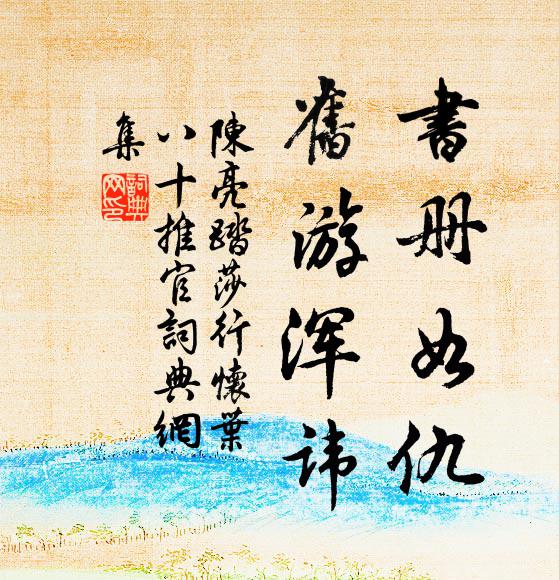 書册如仇
舊游浑讳
陳亮踏莎行懷葉
八十推官詞典網
集
詞典网印